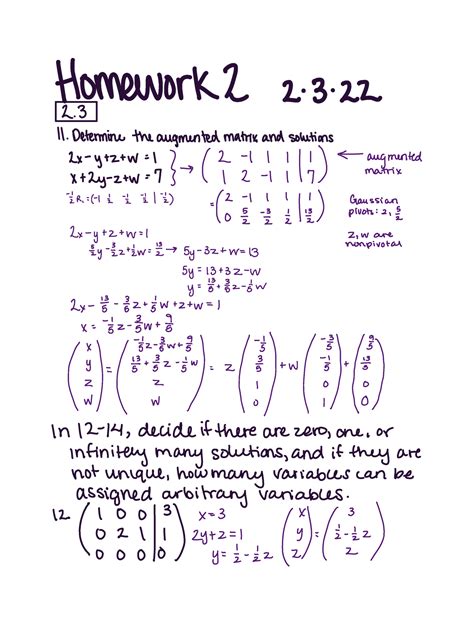 Homework 2 2.3.22
2.3
11. Determine the augmented matrix and solutions
2x-y+z+w=1
x+2y-z+w=7
→ ( 2 -1 1 1 | 1 )
( 1 2 -1 1 | 7 )
← augmented matrix
-1/2 R₁ = (-1 1/2 -1/2 -1/2 | -1/2)
= ( 2 -1 1 1 | 1 )
( 0 5/2 -3/2 1/2 | 13/2 )
Gaussian
pivots: 2, 5/2
z, w are
nonpivotal
2x-y+z+w=1
5/2y-3/2z+1/2w=13/2 → 5y-3z+w=13
5y=13+3z-w
y=13/5+3/5z-1/5w
2x-13/5-3/5z+1/5w+z+w=1
x=-1/5z-3/5w+9/5
( x ) = ( -1/5z-3/5w+9/5 ) = z ( -1/5 ) + w ( -3/5 ) + ( 9/5 )
( y ) ( 13/5+3/5z-1/5w ) ( 3/5 ) ( -1/5 ) ( 13/5 )
( z ) ( z ) ( 1 ) ( 0 ) ( 0 )
( w ) ( w ) ( 0 ) ( 1 ) ( 0 )
In 12-14, decide if there are zero, one, or
infinitely many solutions, and if they are
not unique, how many variables can be
assigned arbitrary variables.
12 ( 1 0 0 | 3 ) x=3 ( x ) = ( 3 )
( 0 2 1 | 1 ) 2y+z=1 ( y ) ( 1/2-1/2z )
( 0 0 0 | 0 ) y=1/2-1/2z ( z ) ( z )